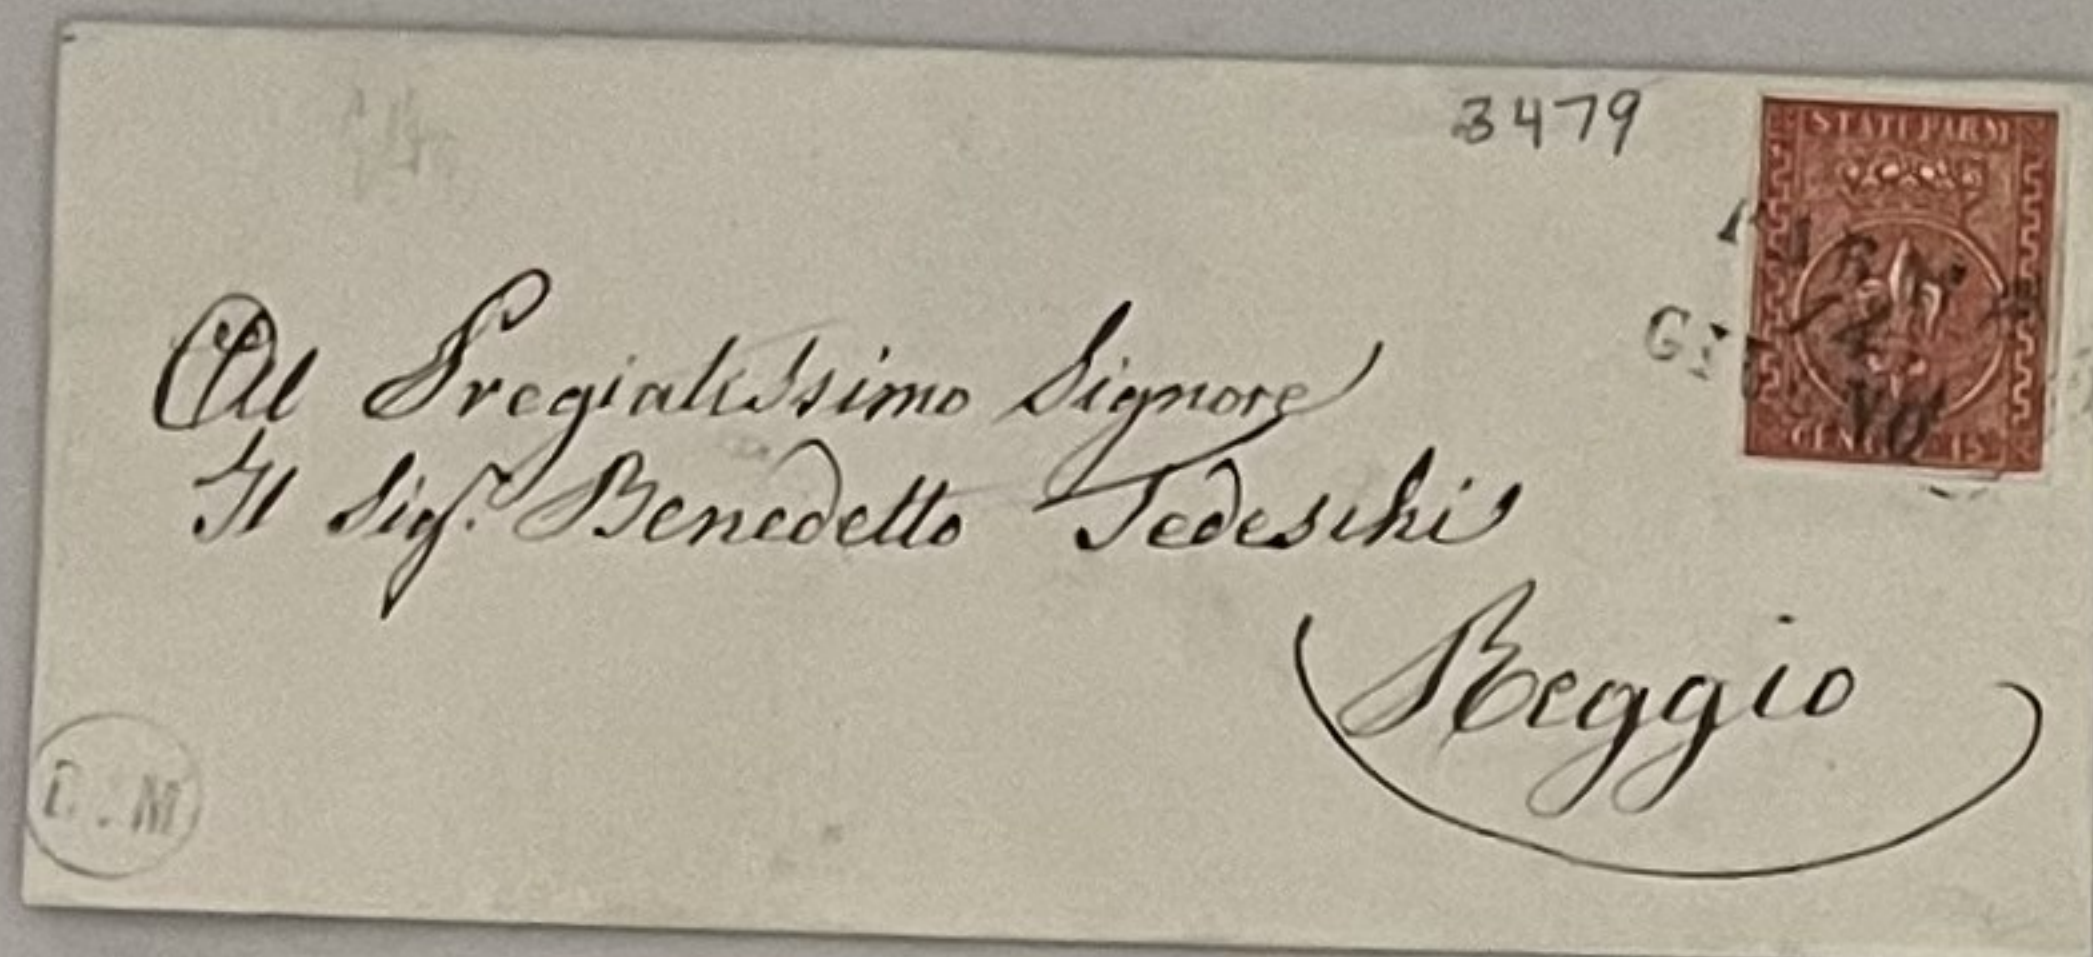 3479
STATI PARM
CENT. 15
Al Pregiatissimo Signore
Il Sigr. Benedetto Tedeschi
Reggio